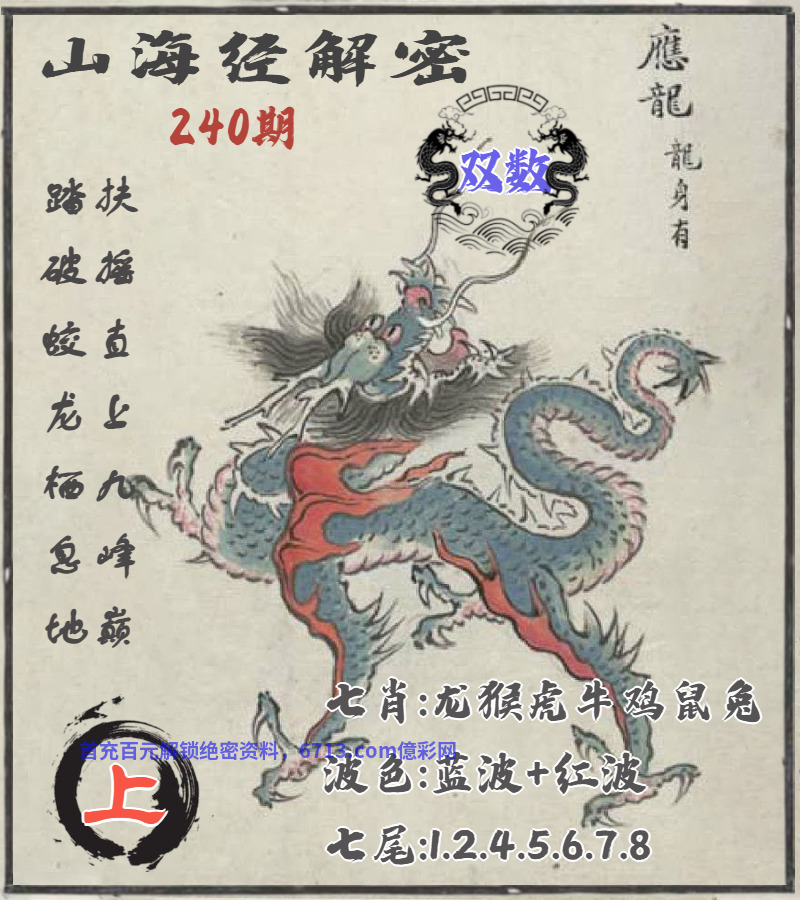 山海经解密
240期
應龍
龍身有
双数
扶摇直上九峰巅
踏破蛟龙栖息地
七肖:龙猴虎牛鸡鼠兔
首充百元解锁绝密资料，6713.com億彩网
波色:蓝波+红波
上
七尾:1.2.4.5.6.7.8